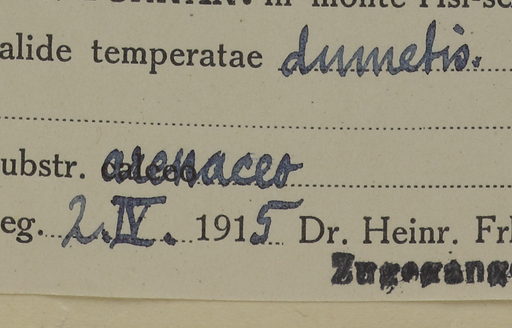 in monte Hsi-s
alide temperatae dumetis.
ubstr. arenaceo
eg. 2. IV. 1915 Dr. Heinr. Fr
Zugegang